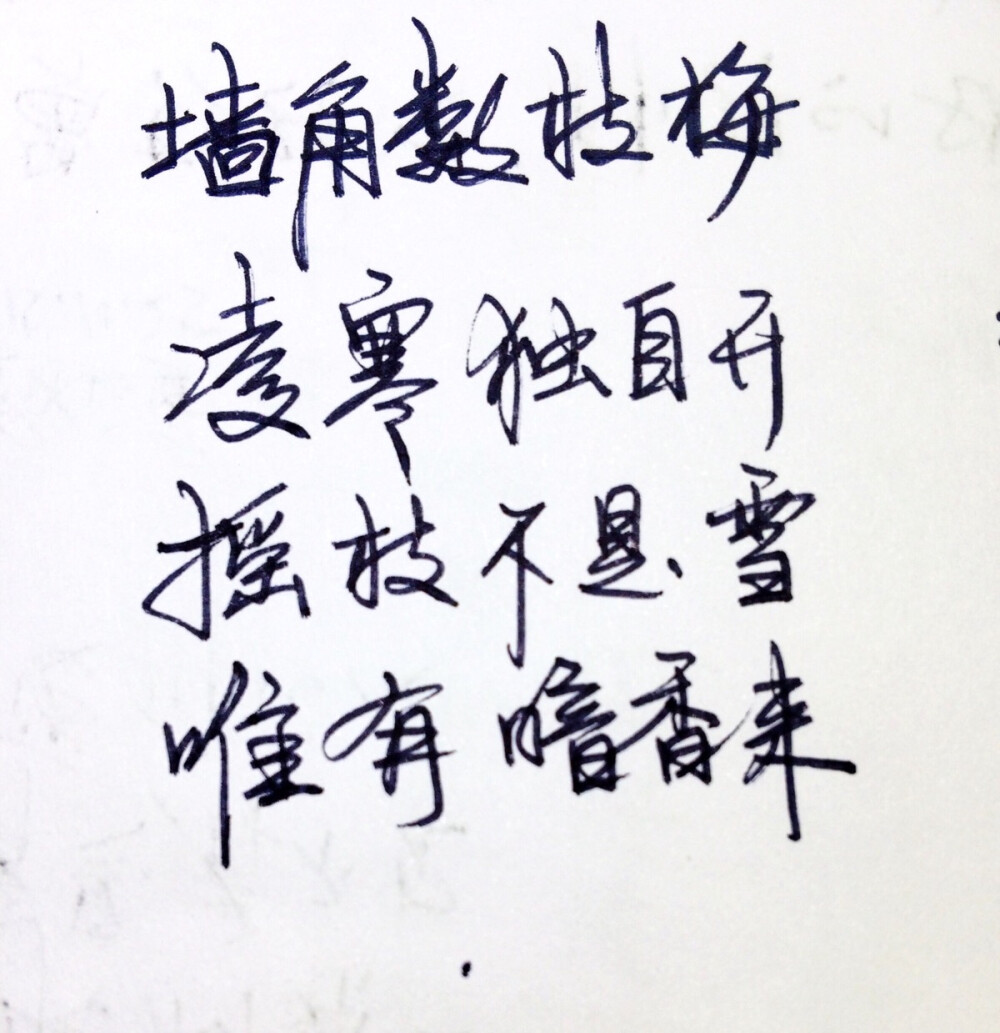 墙角数枝梅
凌寒独自开
摇枝不是雪
唯有暗香来